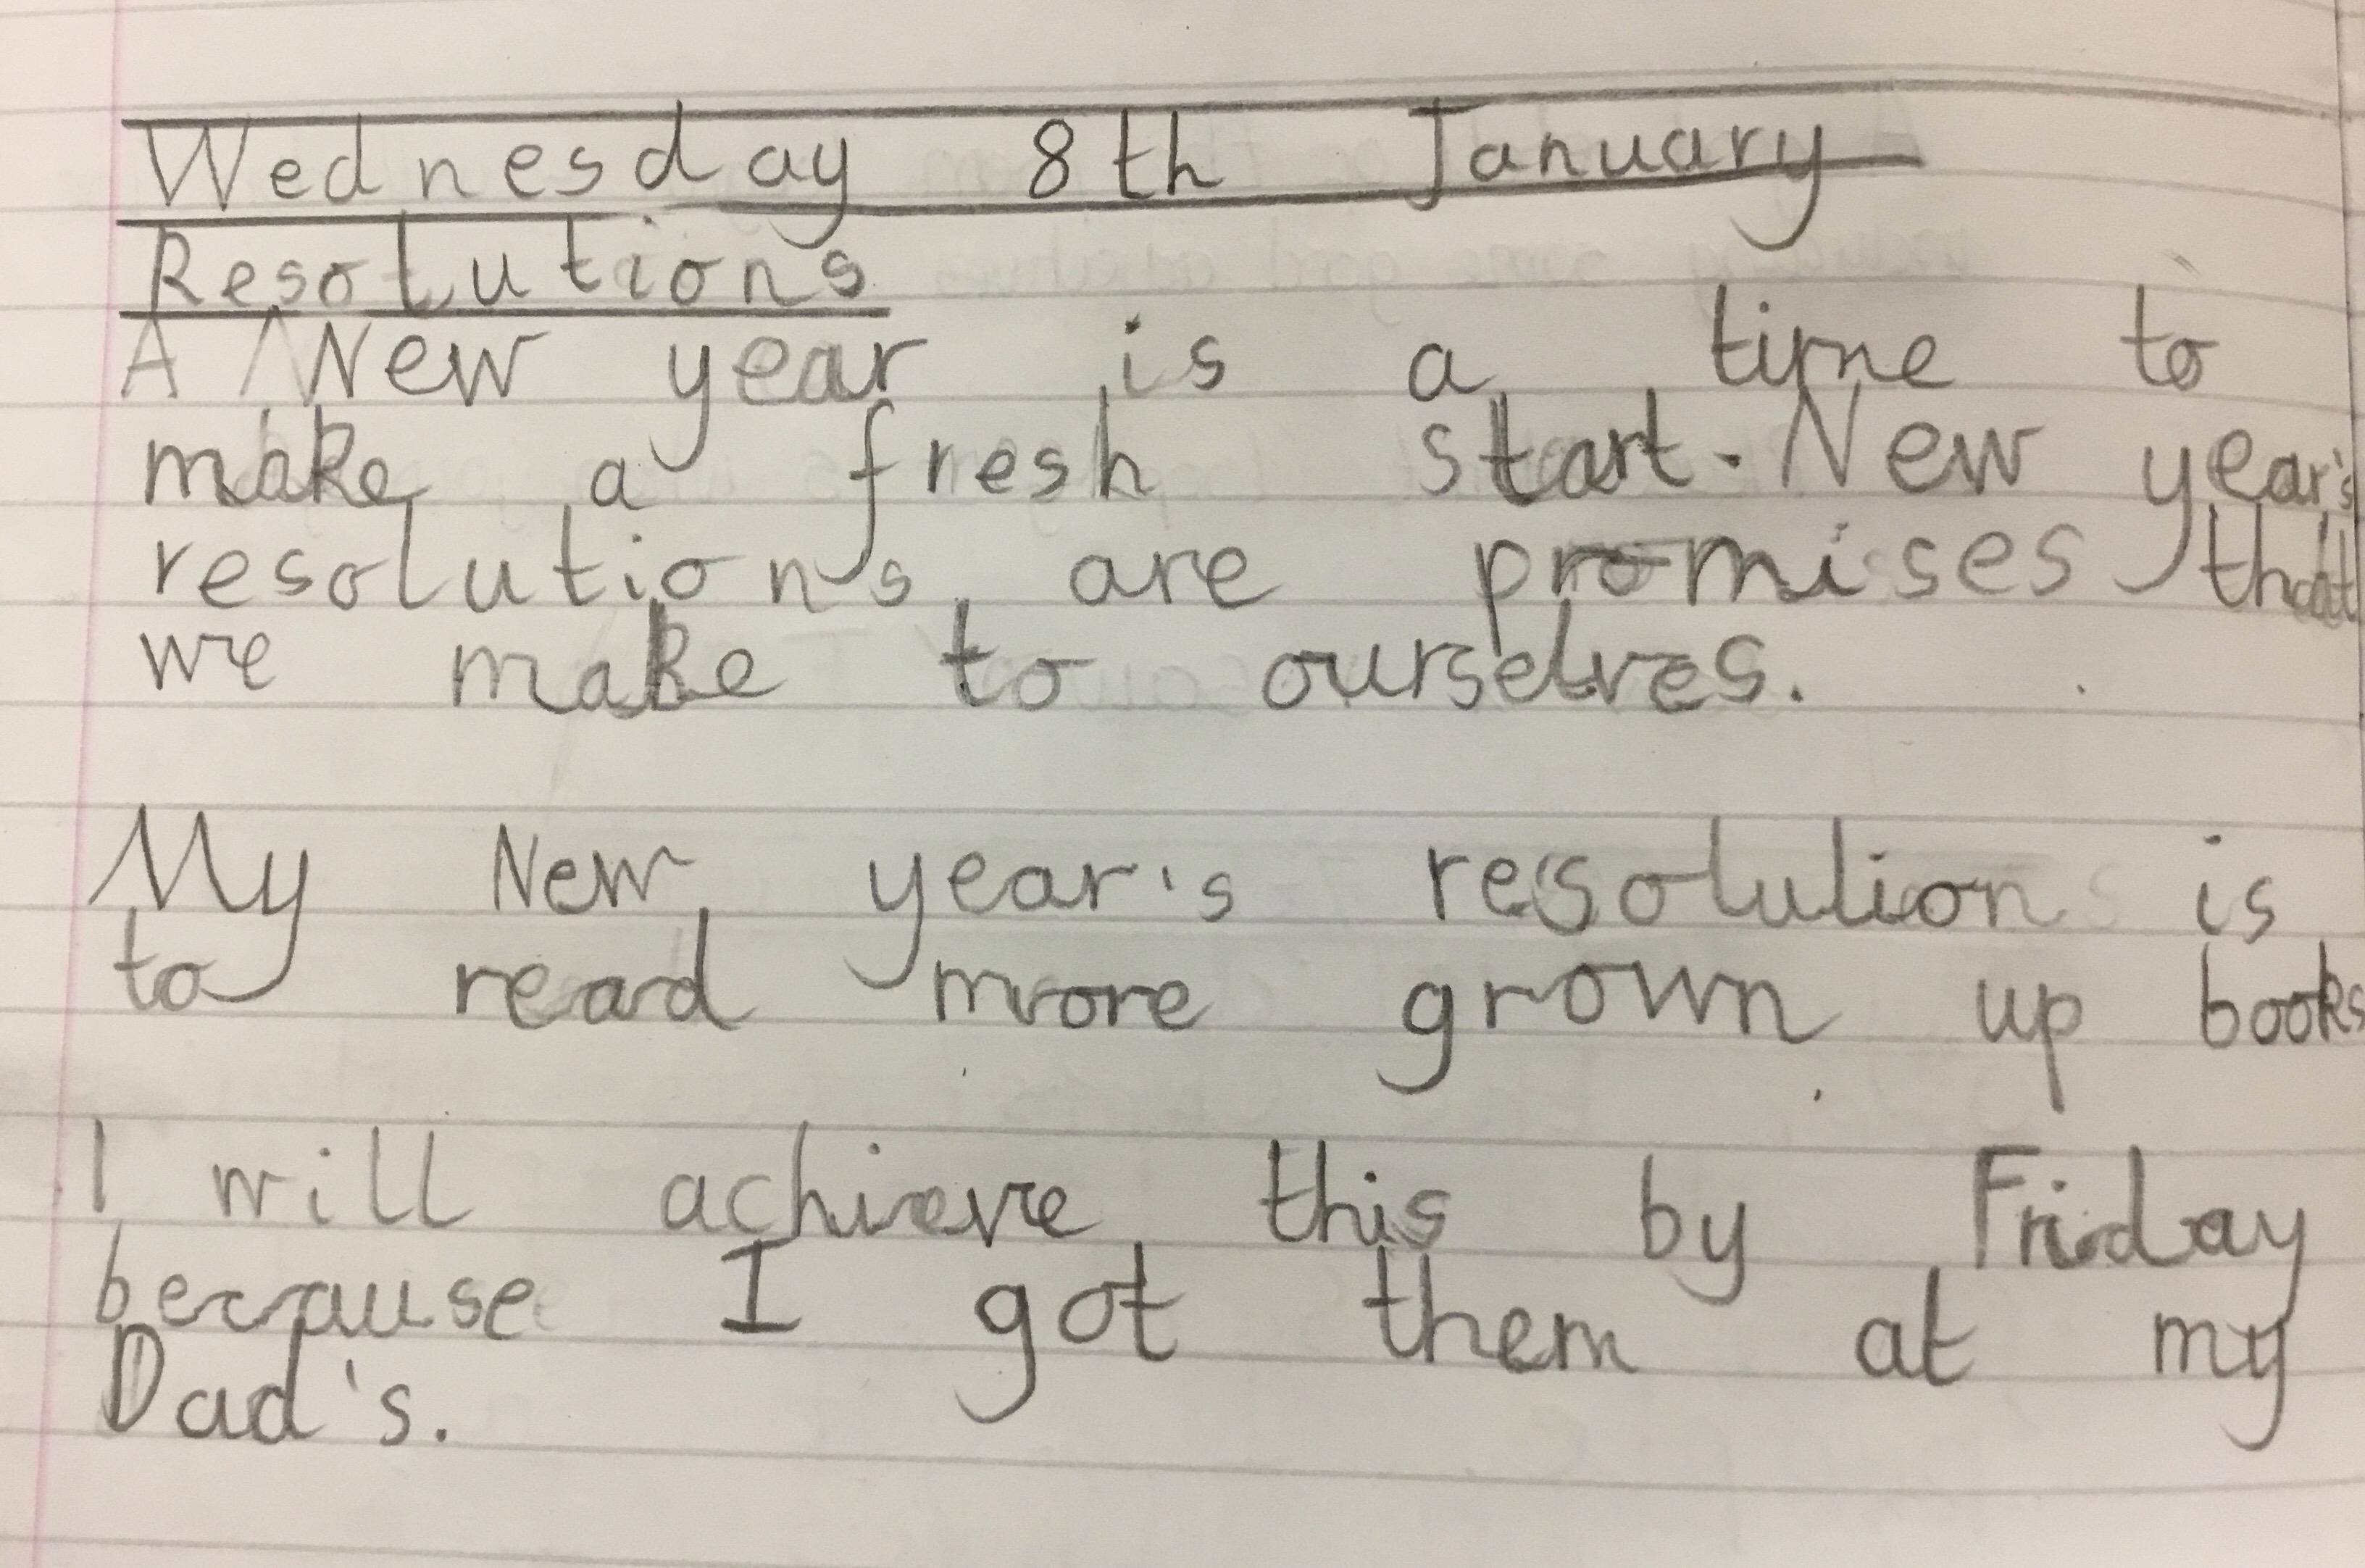 Wednesday 8th January
Resolutions
A New year is a time to
make a fresh start. New year's
resolutions are promises that
we make to ourselves.
My New year's resolution is
to read more grown up books
I will achieve this by Friday
because I got them at my
Dad's.